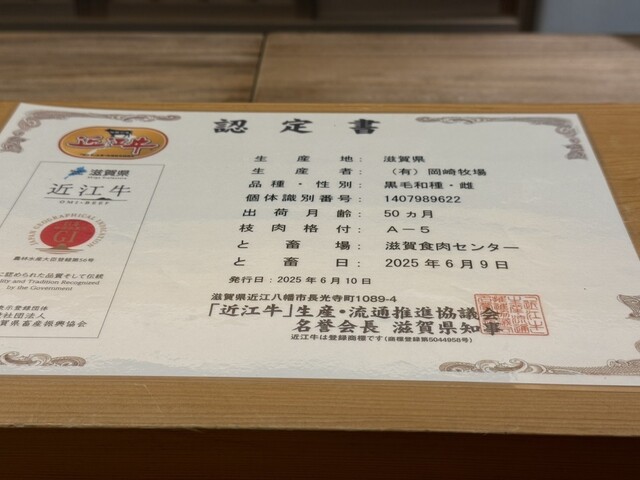 認定書
近江牛
滋賀県
近江牛
OMI-BEEF
JAPAN GEOGRAPHICAL INDICATION
GI
農林水産大臣登録第56号
に認められた品質そして伝統
ality and Tradition Recognised
by the Government
表示登録団体
般社団法人
滋賀県畜産振興協会
生産地: 滋賀県
生産者: (有)岡崎牧場
品種・性別: 黒毛和種・雌
個体識別番号: 1407989622
出荷月齢: 50ヵ月
枝肉格付: A-5
と畜場: 滋賀食肉センター
と畜日: 2025年6月9日
発行日:2025年6月10日
滋賀県近江八幡市長光寺町1089-4
「近江牛」生産・流通推進協議会
名誉会長 滋賀県知事
近江牛は登録商標です(商標登録第5044958号)